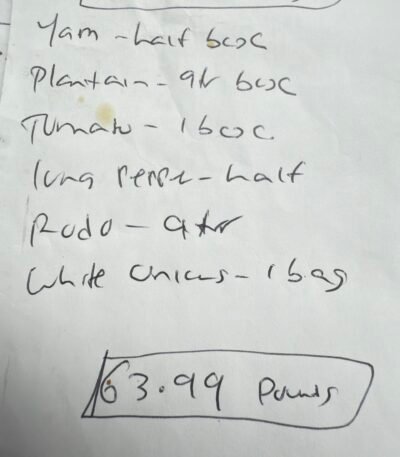 Yam - half box
Plantain - qtr box
Tumato - 1 box
long peppe - half
Rodo - qtr
White onions - 1 bag
63.99 Pounds